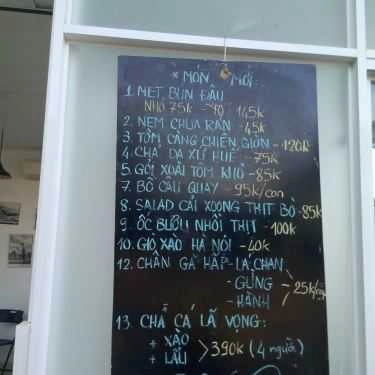 * MÓN MỚI:
1. MẸT BÚN ĐẬU
NHỎ 75K - TO 145K
2. NEM CHUA RÁN - 45K
3. TÔM CÀNG CHIÊN GIÒN - 120K
4. CHẢ DA XỨ HUẾ - 75K
5. GỎI XOÀI TÔM KHÔ - 85K
7. BỒ CÂU QUAY - 95K/con
8. SALAD CẢI XOONG THỊT BÒ - 85K
9. ỐC BƯƠU NHỒI THỊT - 100K
10. GIÒ XÀO HÀ NỘI - 40K
12. CHÂN GÀ HẤP - LÁ CHANH
- GỪNG
- HÀNH
25K/
13. CHẢ CÁ LÃ VỌNG:
+ XÀO
+ LẨU
> 390K (4 người)